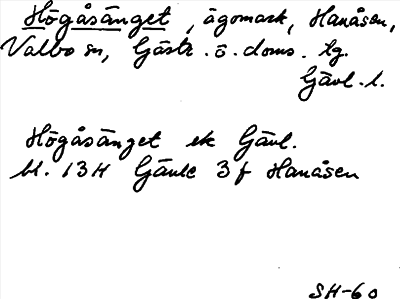 Högåsänget, ägomark, Hanåsen,
Valbo sn, Gästr. ö. doms. tg.
Gävl. l.
Högåsänget ek Gävl.
bl. 13H Gävle 3f Hanåsen
SH-60